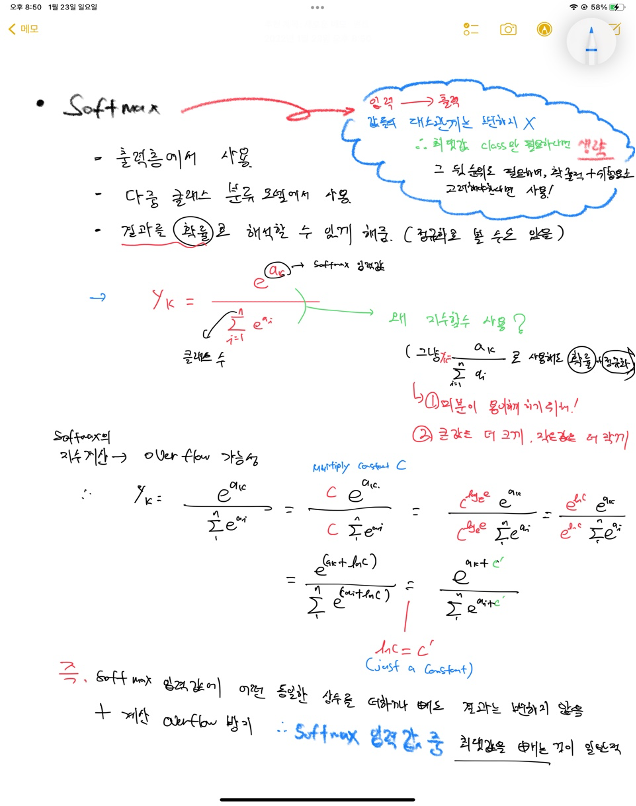 오후 8:50 1월 23일 일요일
58%
메모
• Softmax
입력 → 출력
값들의 대소관계는 변하지 X
∴ 최댓값 class만 필요하다면 생략
그 뒤 순위도 필요하며,
고려해야한다면 사용!
- 출력층에서 사용
- 다중 클래스 분류 모델에서 사용
- 결과를 확률로 해석할 수 있게 해줌. (정규화로 볼 수도 있음)
→ softmax 입력값
→ yₖ = e^(aₖ) / Σ_(i=1)^n e^(aᵢ)
클래스 수
왜 지수함수 사용?
(그냥 yₖ = aₖ / Σ_(i=1)^n aᵢ 로 사용해도 확률, 정규화)
① 미분이 용이하게 하기 위해!
② 큰 값은 더 크게, 작은값은 더 작게
Softmax의
지수계산 → overflow 가능성
Multiply constant C
∴ yₖ = e^(aₖ) / Σ^n e^(aᵢ) = C e^(aₖ) / C Σ^n e^(aᵢ) = C^(log_e e) e^(aₖ) / C^(log_e e) Σ^n e^(aᵢ) = e^(ln C) e^(aₖ) / e^(ln C) Σ^n e^(aᵢ)
= e^(aₖ + ln C) / Σ^n e^(aᵢ + ln C) = e^(aₖ + C′) / Σ^n e^(aᵢ + C′)
ln C = C′
(just a constant)
즉. softmax 입력값에 어떤 동일한 상수를 더하거나 빼도 결과는 변하지 않음
+ 계산 overflow 방지
∴ Softmax 입력값 중 최댓값을 빼는 것이 일반적